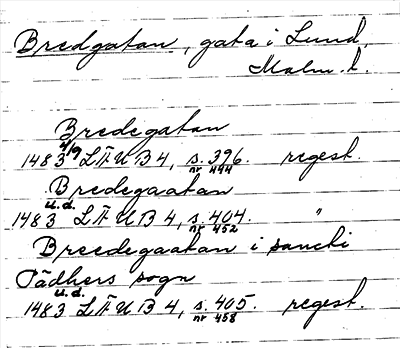 Bredgatan, gata i Lund,
Malm. l.
Bredegatan
1483 4/9 LÄUB 4, s. 396. regest.
nr 444
Bredegaatan
1483 u.d. LÄUB 4, s. 404. "
nr 452
Breedegaatan i sancti
Pädhers sogn
1483 u.d. LÄUB 4, s. 405. regest.
nr 458